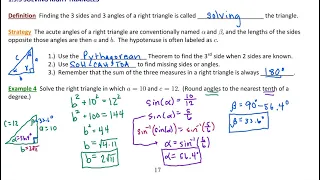 Definition Finding the 3 sides and 3 angles of a right triangle is called solving the triangle.
Strategy The acute angles of a right triangle are conventionally named α and β, and the lengths of the sides
opposite those angles are then a and b. The hypotenuse is often labeled as c.
1.) Use the Pythagorean Theorem to find the 3rd side when 2 sides are known.
2.) Use SOHCAHTOA to find missing sides or angles.
3.) Remember that the sum of the three measures in a right triangle is always 180°
Example 4 Solve the right triangle in which a = 10 and c = 12. (Round angles to the nearest tenth of a
degree.)
b² + 10² = 12²
b² + 100 = 144
b² = 44
b = √4·11
b = 2√11
sin(α) = 10/12
sin(α) = 5/6
sin⁻¹(sin(α)) = sin⁻¹(5/6)
α = sin⁻¹(5/6)
α = 56.4°
β = 90° - 56.4°
β = 33.6°
17